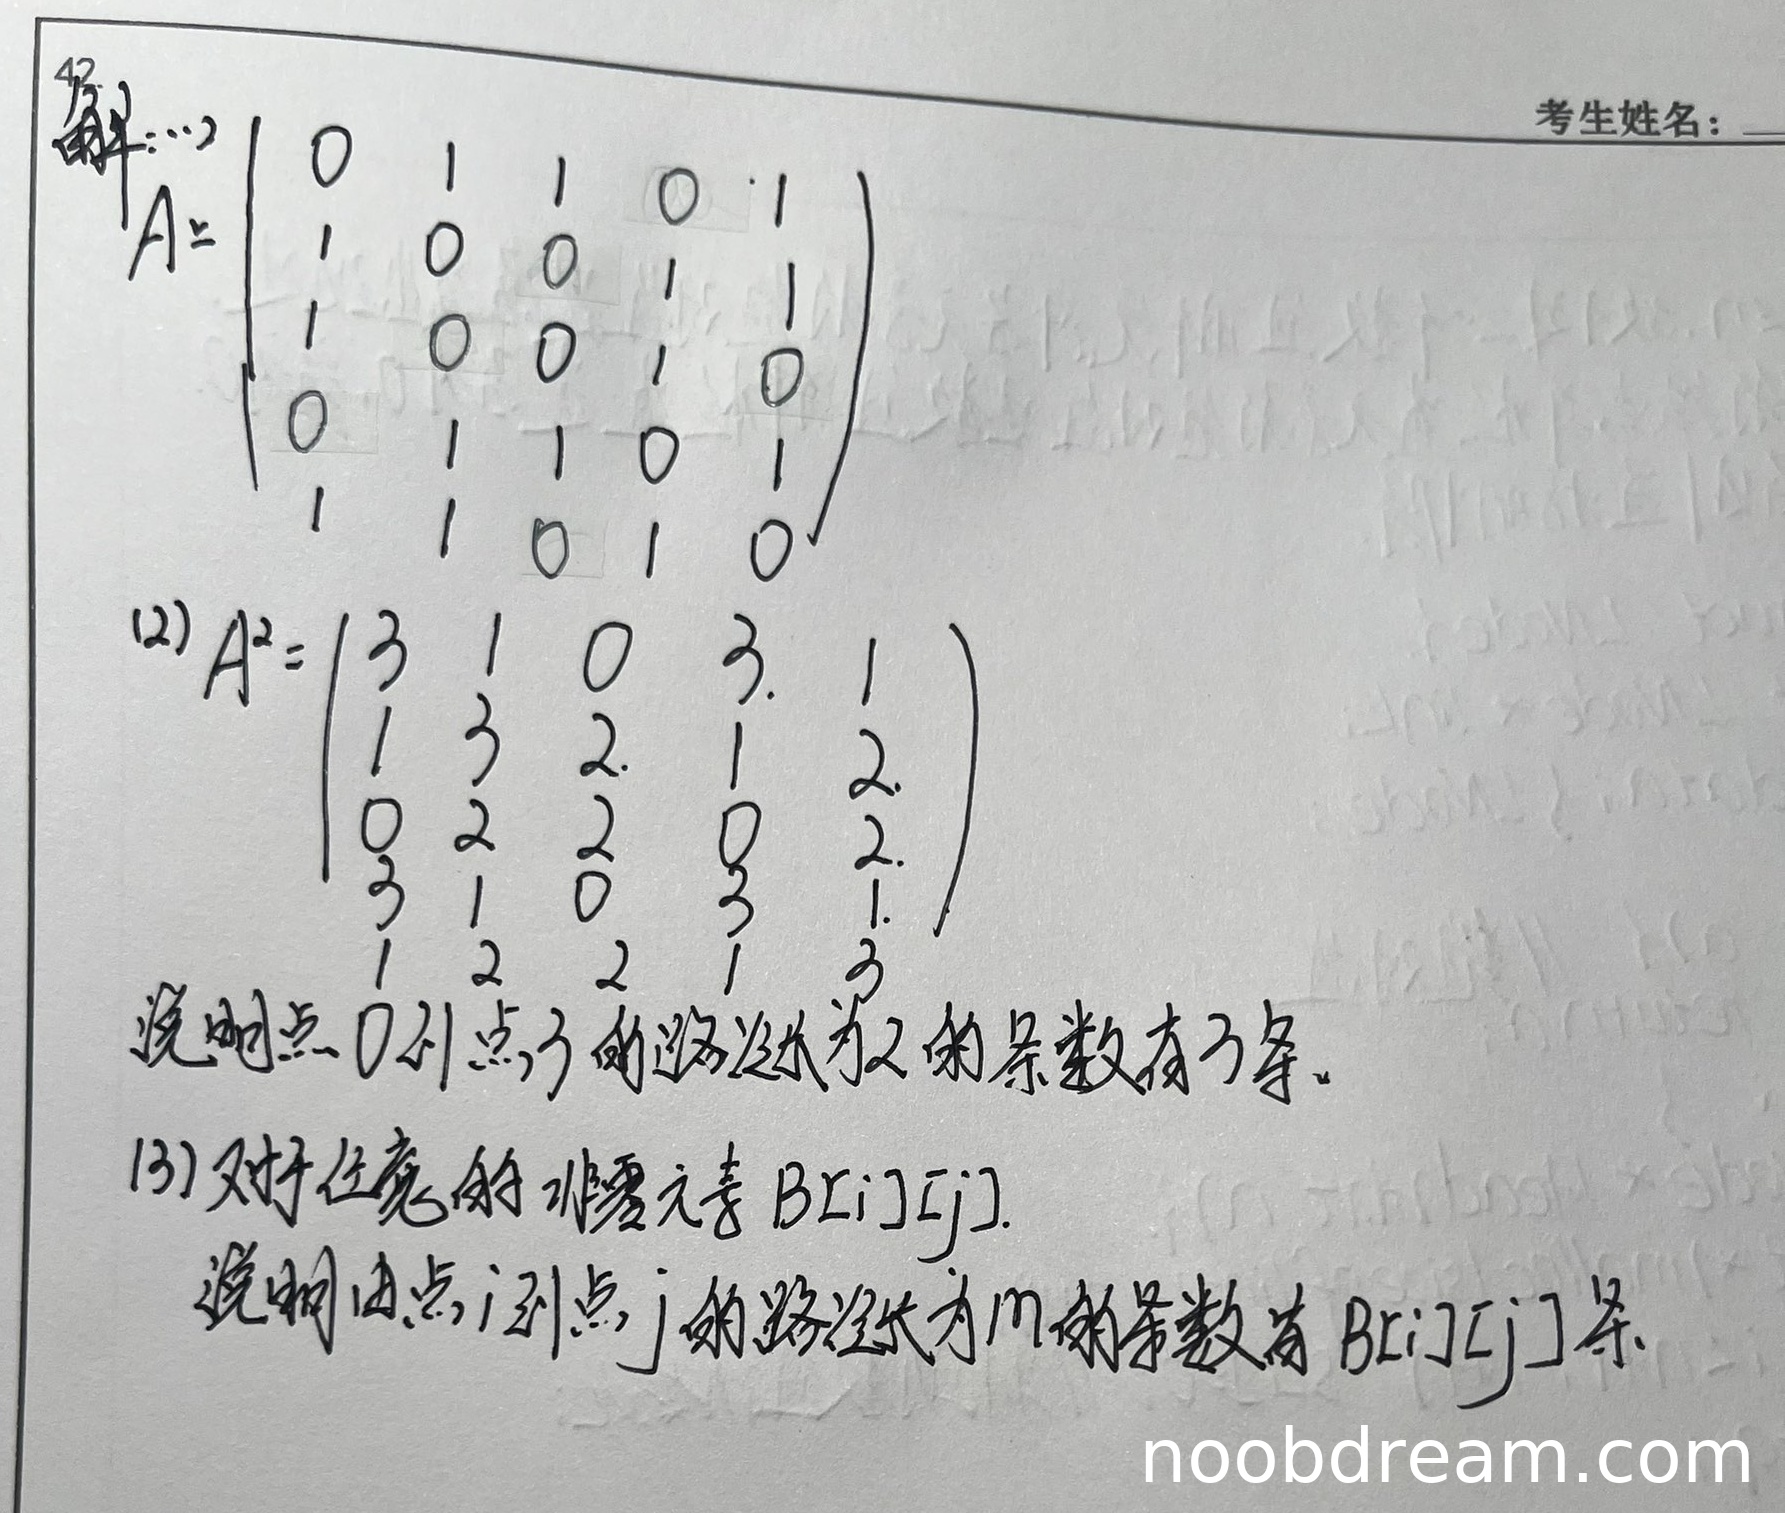 考生姓名：
42
解：(1)
A = 0 1 1 0 1
1 0 0 1 1
1 0 0 1 0
0 1 1 0 1
1 1 0 1 0
(2) A² = 3 1 0 3 1
1 3 2 1 2
0 2 2 0 2
3 1 0 3 1
1 2 2 1 3
说明点0到点3的路径长为2的条数有3条。
(3) 对于任意的非零元素B[i][j].
说明由点i到点j的路径长为m的条数有B[i][j]条.
noobdream.com